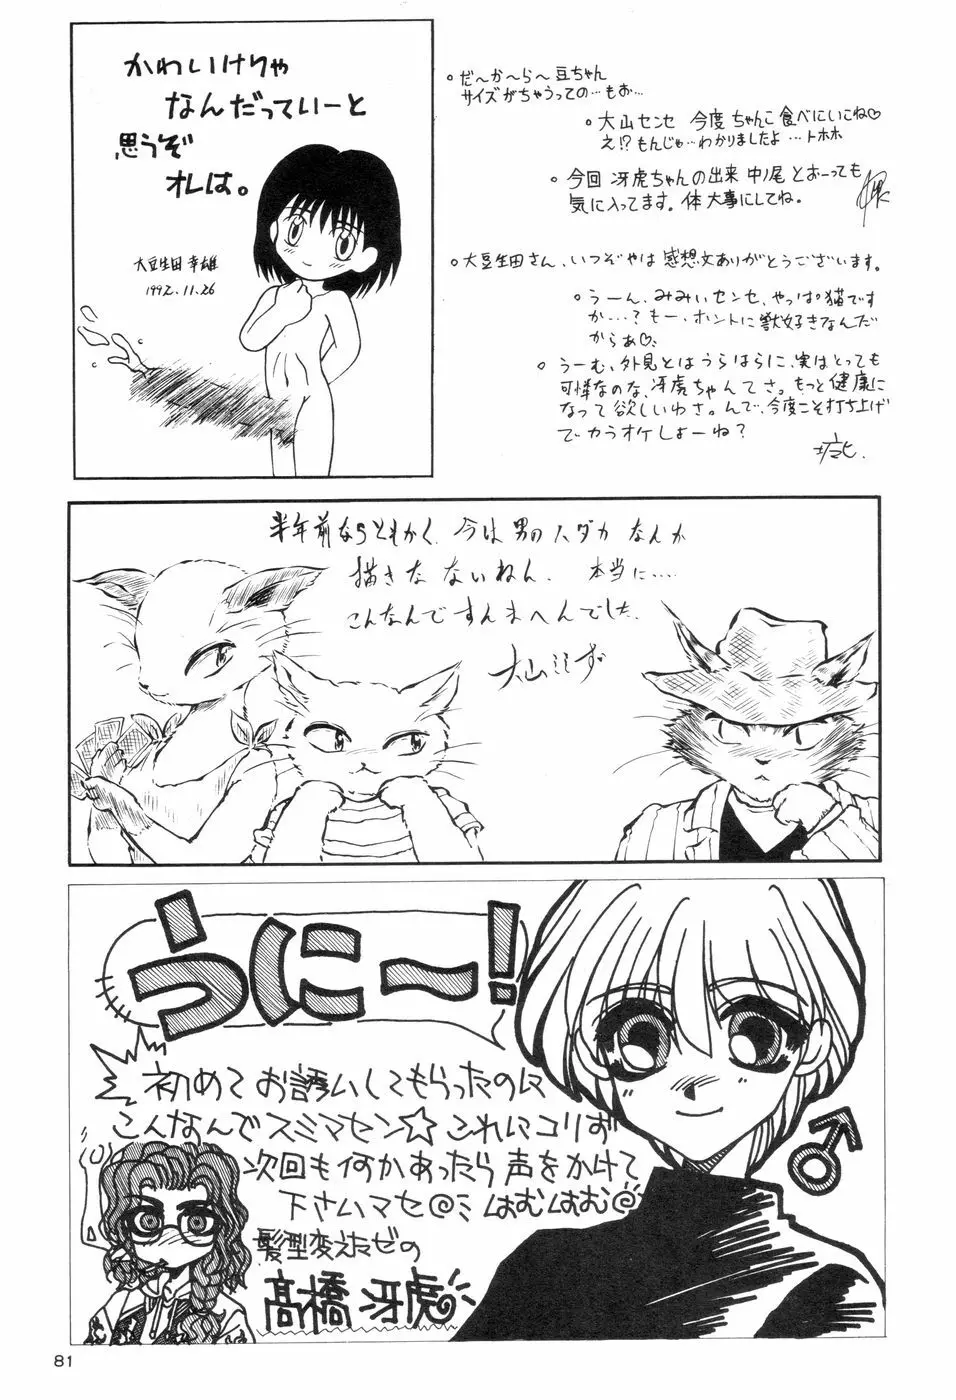 かわいけりゃ
なんだっていーと
思うぞ
オレは。
大豆生田 幸雄
1992.11.26
。だ〜か〜ら〜豆ちゃん
サイズがちゃうっての…もお…
。大山センセ 今度 ちゃんこ食べにいこね♡
え!?もんじゃ…わかりましたよ…トホホ
。今回 冴虎ちゃんの出来 中ノ尾 とおーっても
気に入ってます。体大事にしてね。
。大豆生田さん、いつぞやは感想文ありがとうございます。
。うーん、みみぃセンセ、やっぱ猫です
か…?もー、ホントに獣好きなんだ
からぁ♡
。うーむ、外見とはうらはらに、実はとっても
可憐なのな、冴虎ちゃんてさ。もっと健康に
なって欲しいわさ。んで、今度こそ打ち上げ
でカラオケしよーね?
半年前ならともかく、今は男のハダカなんか
描きたくないねん。本当に……
こんなんですんまへんでした。
うに〜!
初めてお誘いしてもらったのに
こんなんでスミマセン☆これにコリず
次回も何かあったら声をかけて
下さいマセ@ミはむはむ@
髪型変えたゼの
高橋 冴虎
81